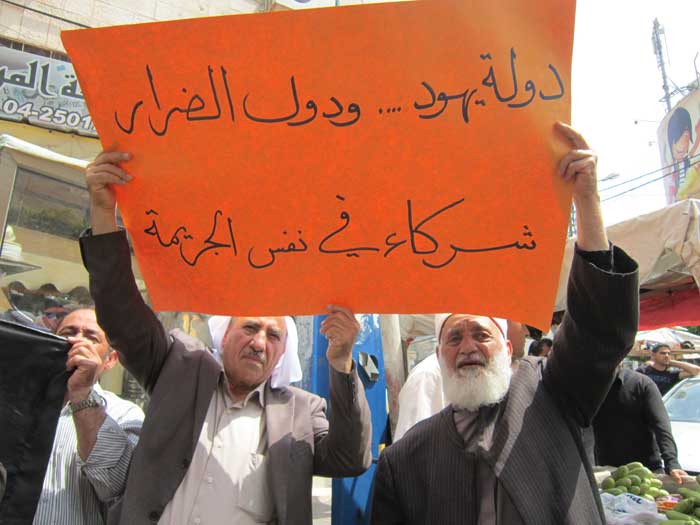 دولة يهود .... ودول الضرار
شركاء في نفس الجريمة
04-2501